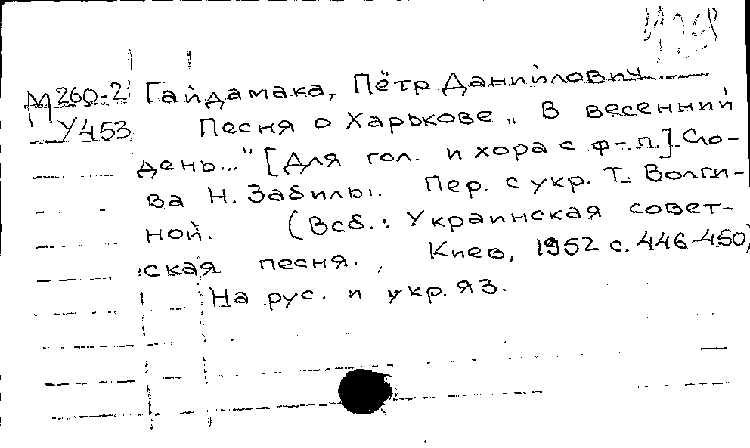 М260-2 Гайдамака, Пётр Данийлович
У453 Песня о Харькове „В весенний
день..." [Для гол. и хора с ф-.п.]. Сло-
ва Н. Забилы. Пер. с укр. Т. Волги-
ной. (В сб.: Украинская совет-
ская песня., Киев, 1952 с. 446-450)
На рус. и укр. яз.